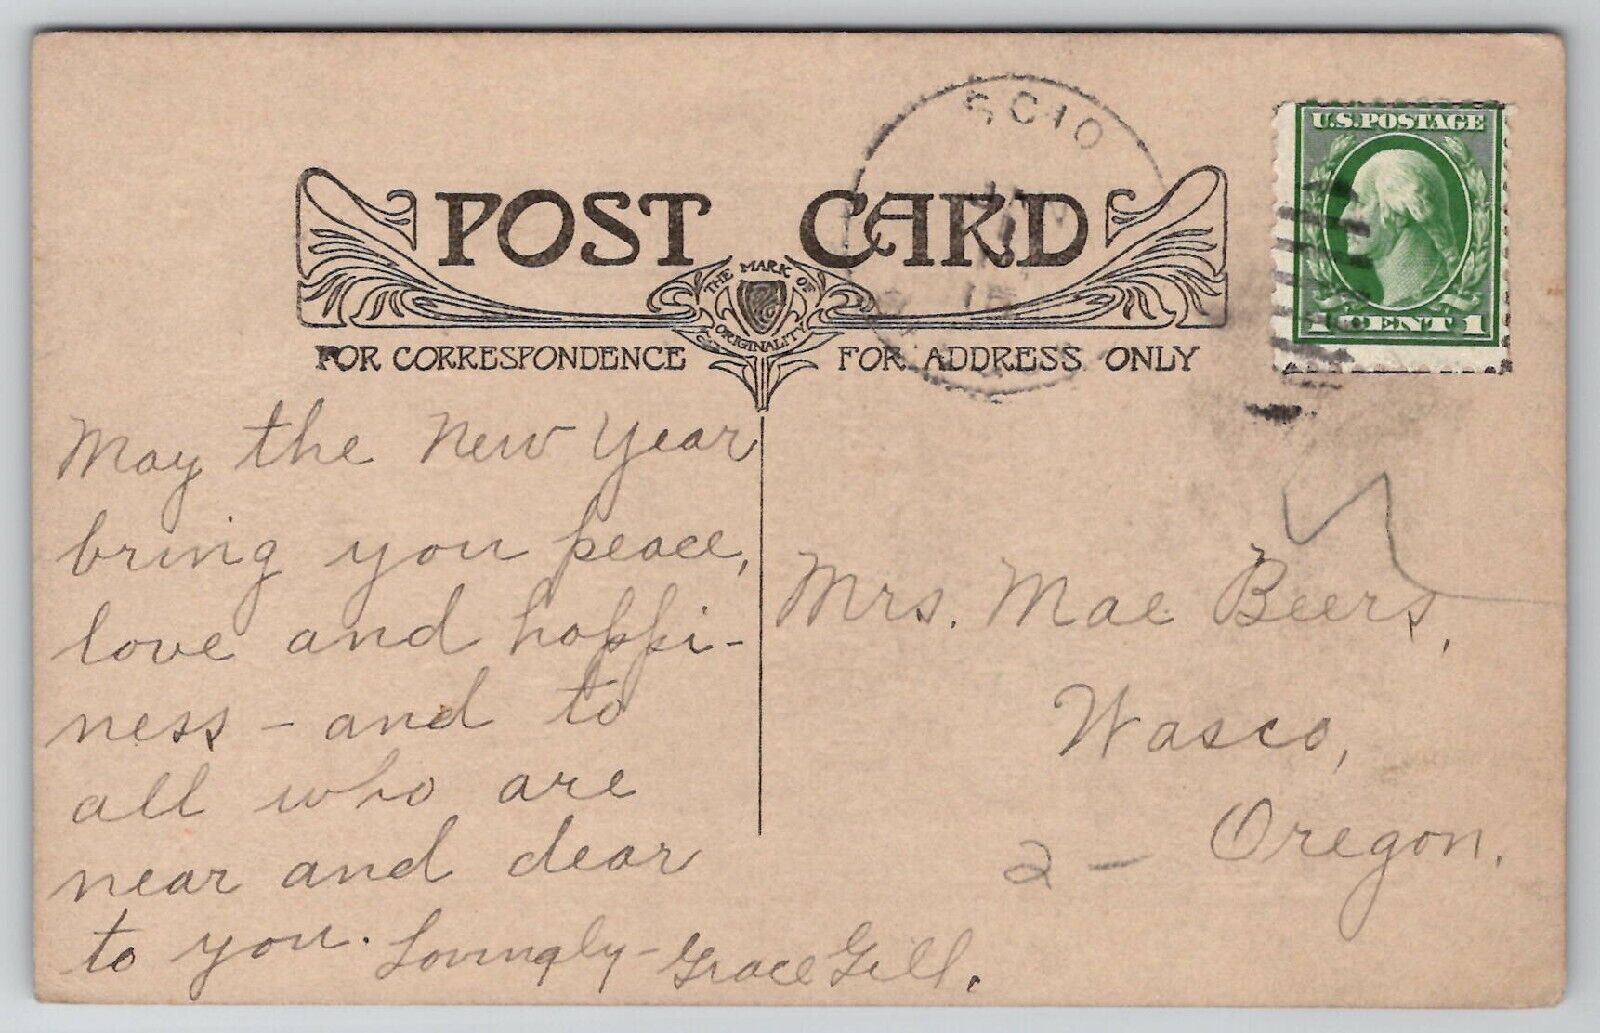 SCIO
U.S. POSTAGE
1 CENT 1
POST CARD
THE MARK OF
ORIGINALITY
FOR CORRESPONDENCE
FOR ADDRESS ONLY
May the New Year
bring you peace,
love and happi-
ness - and to
all who are
near and dear
to you. Lovingly - Grace Gill.
Mrs. Mae Beers,
Wasco,
Oregon.
2 -